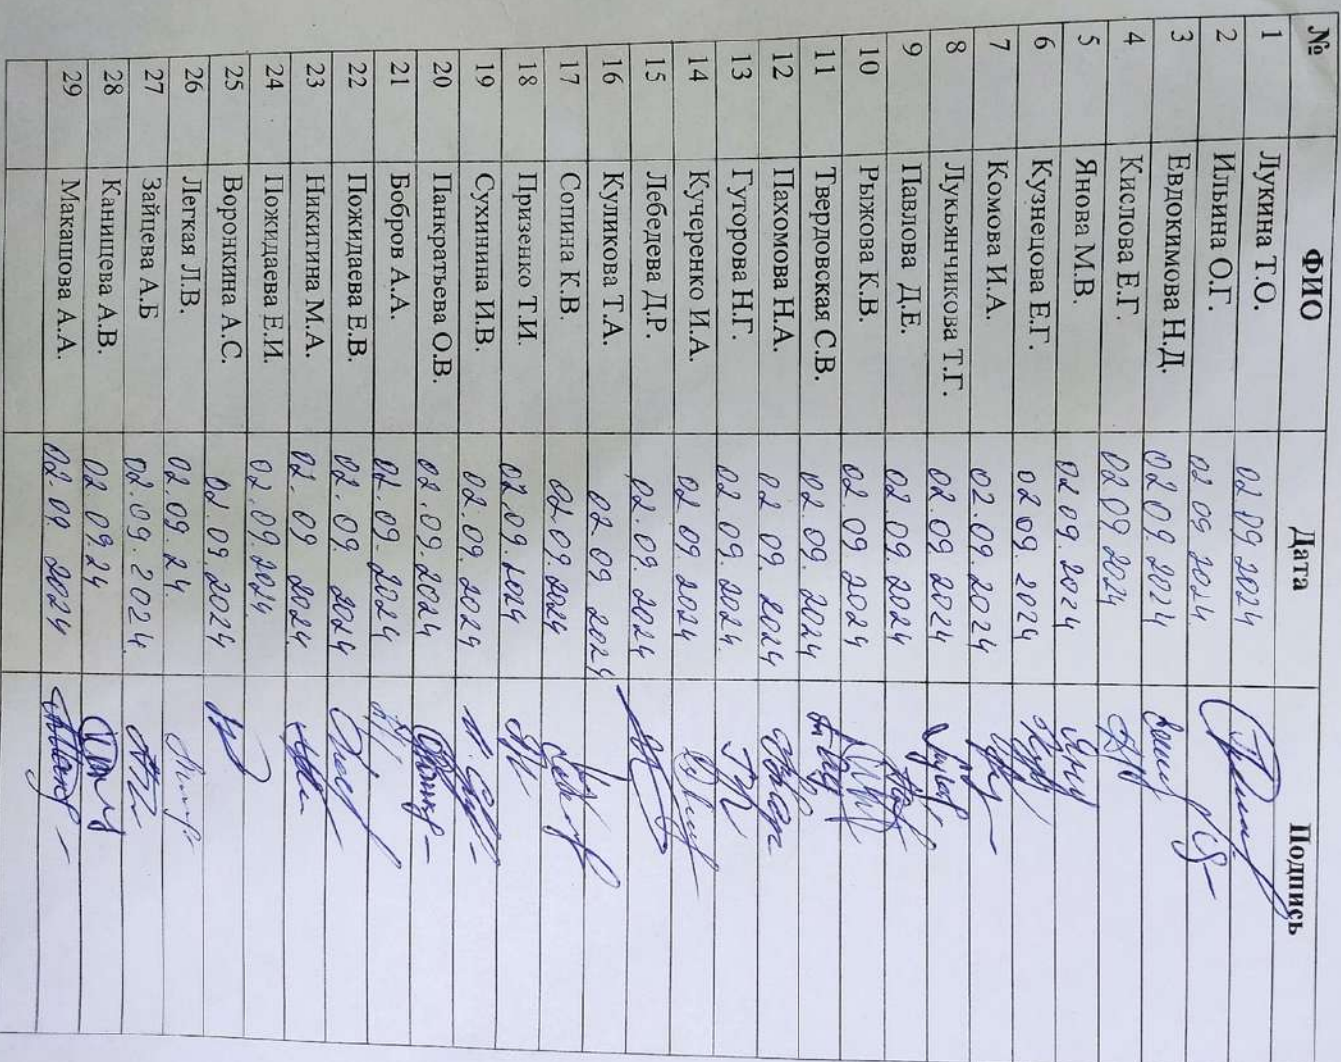 № ФИО Дата Подпись
1 Лукина Т.О. 02 09 2024
2 Ильина О.Г. 02 09 2024
3 Евдокимова Н.Д. 02 09. 2024
4 Кислова Е.Г. 02 09 2024
5 Янова М.В. 02 09. 2024
6 Кузнецова Е.Г. 02 09. 2024
7 Комова И.А. 02.09.2024
8 Лукьянчикова Т.Г. 02.09 2024
9 Павлова Д.Е. 02.09.2024
10 Рыжова К.В. 02.09 2024
11 Твердовская С.В. 02 09. 2024
12 Пахомова Н.А. 02 09. 2024
13 Гуторова Н.Г. 02.09.2024
14 Кучеренко И.А. 02 09 2024
15 Лебедева Д.Р. 02.09.2024
16 Куликова Т.А. 02.09 2024
17 Сопина К.В. 02.09.2024
18 Призенко Т.И. 02.09.2024
19 Сухинина И.В. 02.09.2024
20 Панкратьева О.В. 02.09.2024
21 Бобров А.А. 02.09.2024
22 Пожидаева Е.В. 02.09.2024
23 Никитина М.А. 02.09 2024.
24 Пожидаева Е.И. 02.09.2024
25 Воронкина А.С. 02.09.2024
26 Легкая Л.В. 02.09.24.
27 Зайцева А.Б 02.09.2024.
28 Канищева А.В. 02.09.24
29 Макашова А.А. 02.09. 2024